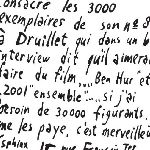 consacre les 3000
exemplaires de son n° 8
à Druillet qui dans un b
interview dit qu'il aimera
faire du film ,, Ben Hur" et
,,2001" ensemble"..... si j'ai
besoin de 30000 figurants,
me les paye, c'est merveilleu